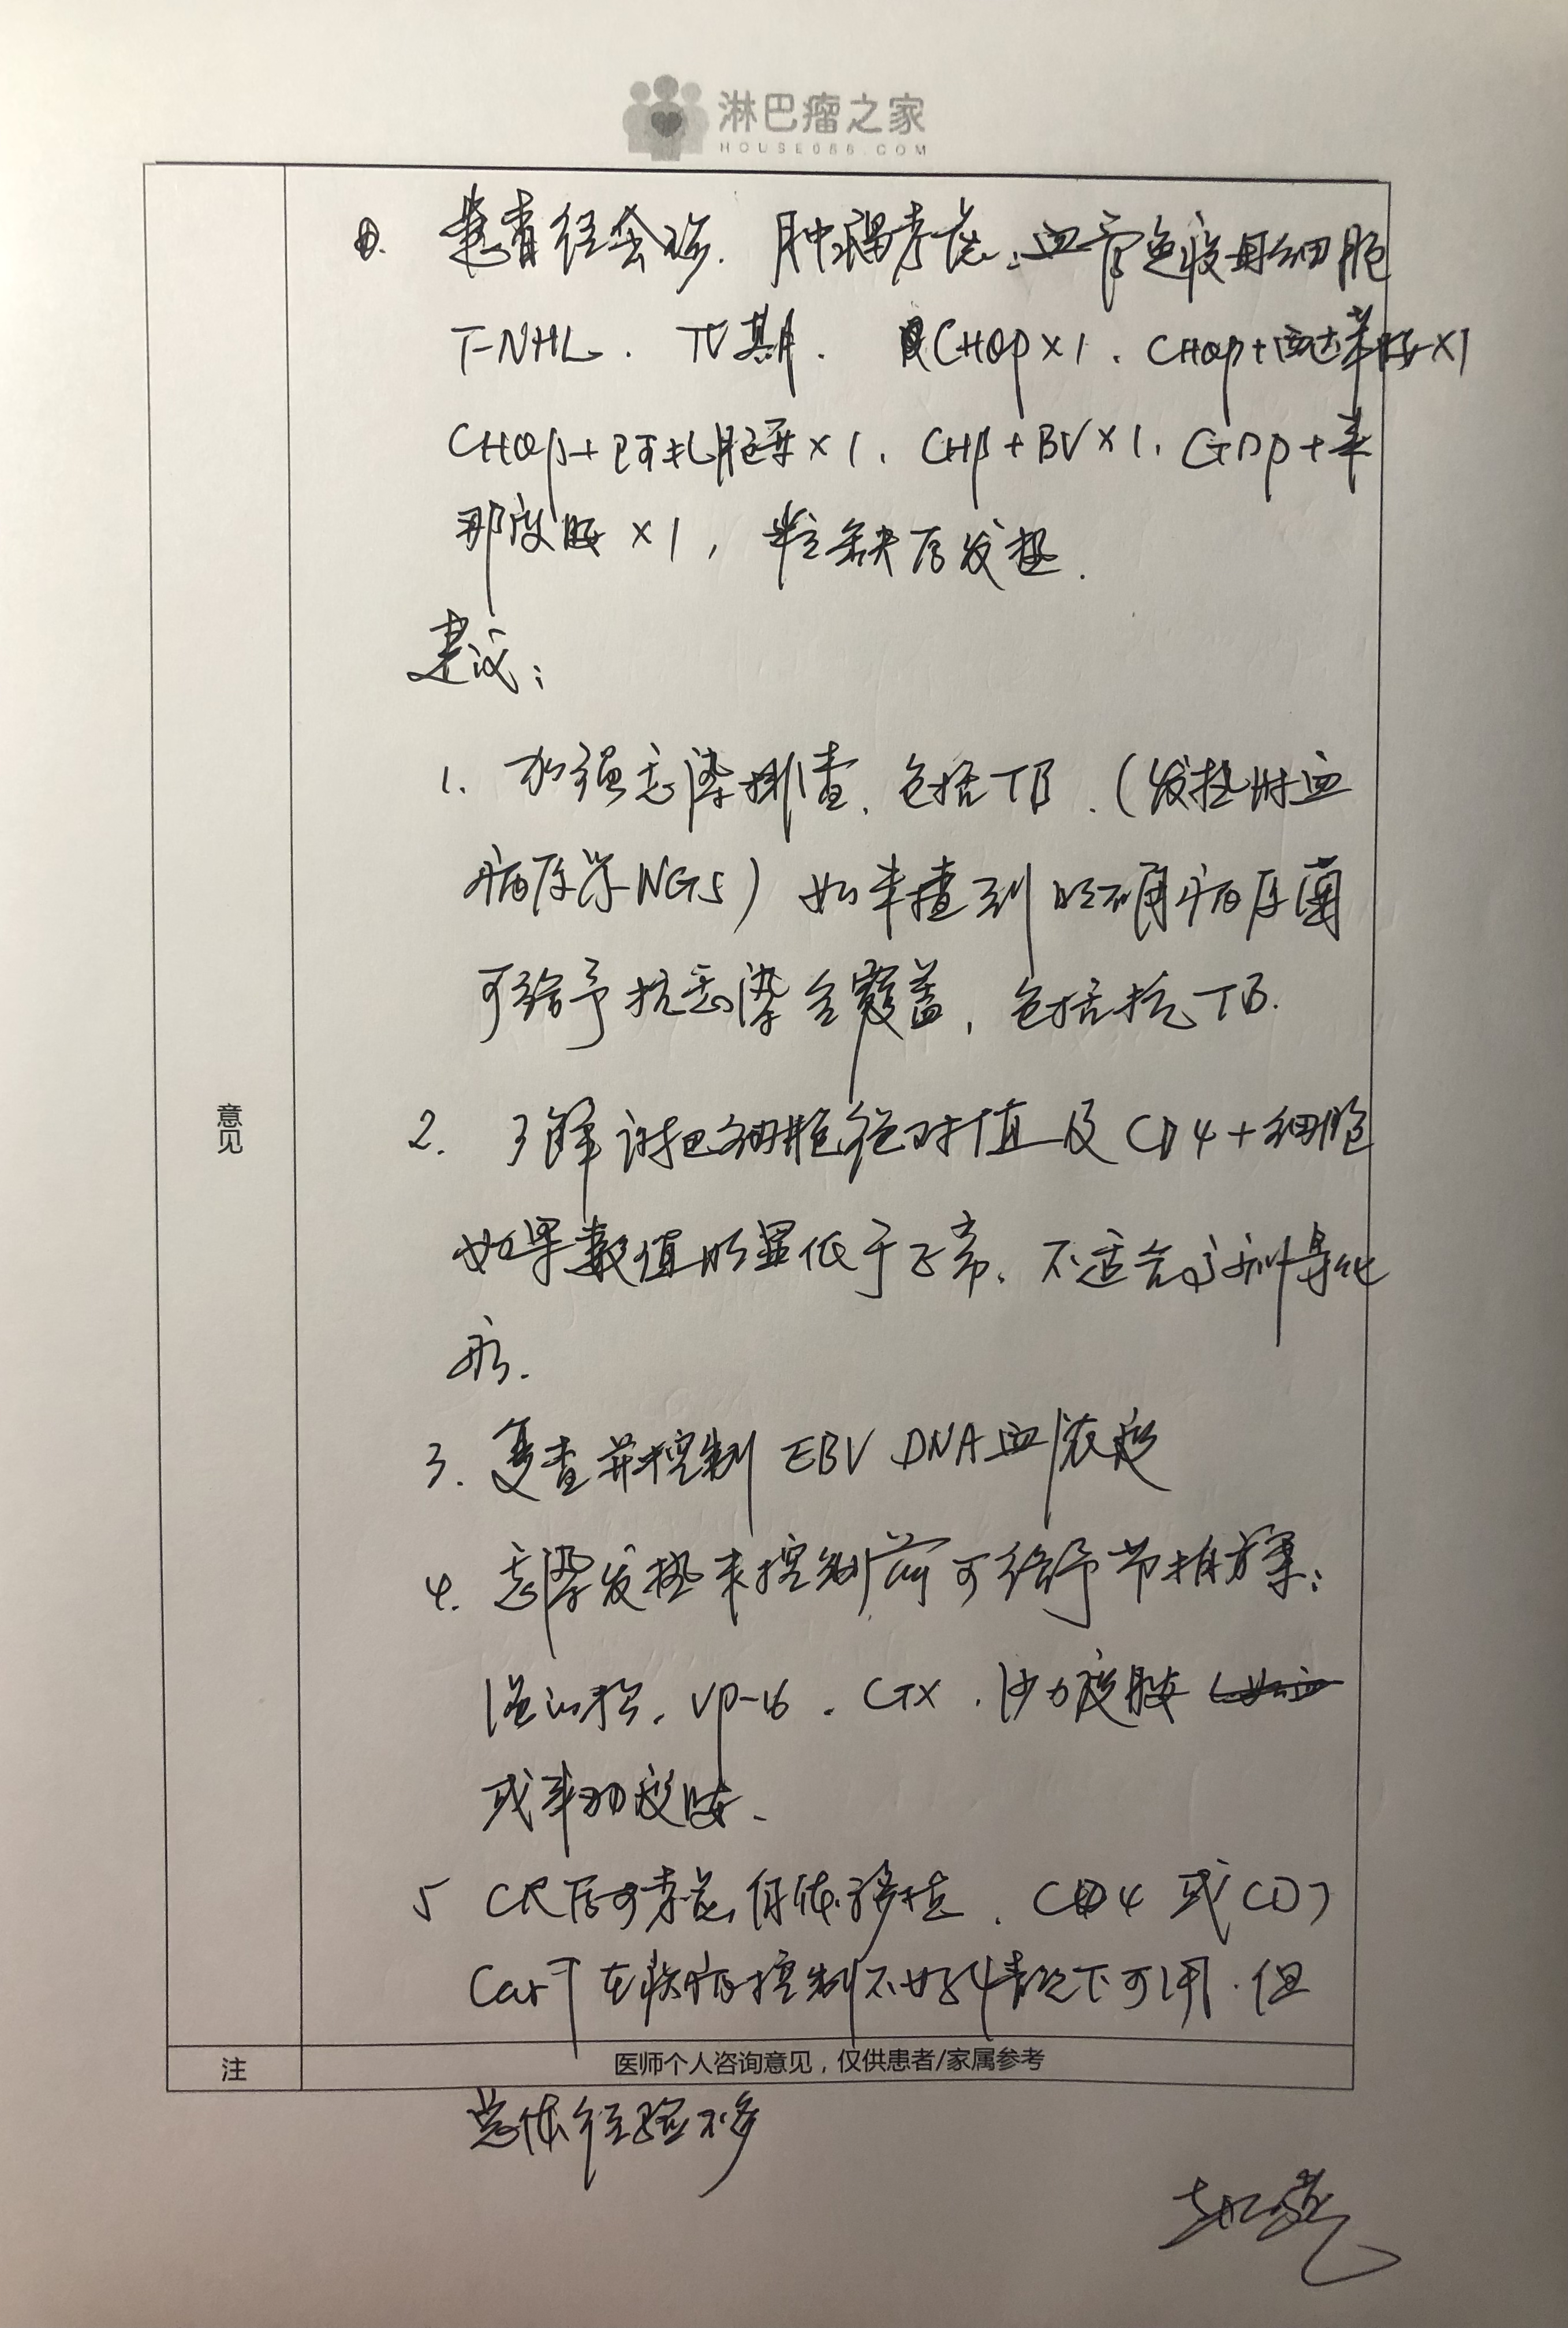 淋巴瘤之家
HOUSE086.COM
患者经会诊. 肿瘤考虑: 血管免疫母细胞
T-NHL. IV期. CHOP×1. CHOP+西达苯胺×1
CHOP+阿扎胞苷×1. CHP+BV×1. GDP+来
那度胺×1, 粒缺后发热.
建议:
1. 加强感染排查. 包括TB. (发热时血
病原学NGS) 如未查到明确病原菌
可给予抗感染全覆盖, 包括抗TB.
2. 了解淋巴细胞绝对值及CD4+细胞
意见
如果数值明显低于正常. 不适合序列导化
疗.
3. 复查并控制 EBV DNA血浓度
4. 感染发热未控制前可给予节拍方案:
VP-16. CTX. 沙力度胺
或来那度胺.
5 CR后可考虑移植. CD4 或CD7
CarT 在疾病控制不好情况下可用. 但
注 医师个人咨询意见，仅供患者/家属参考
总体经验不多